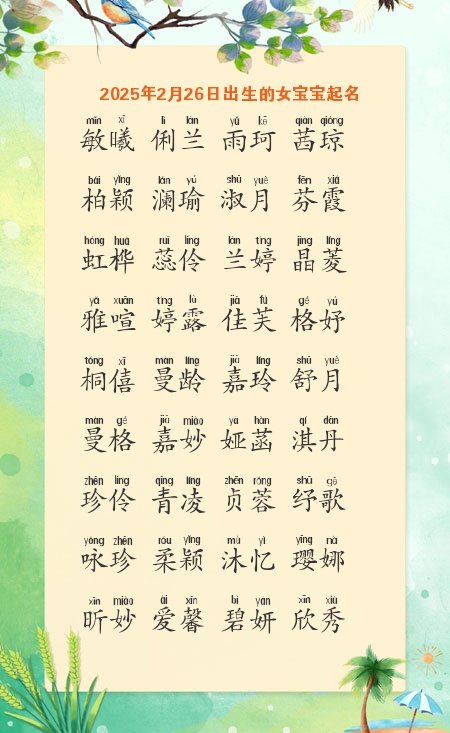 2025年2月26日出生的女宝宝起名
mǐn xī lì lán yǔ kē qiàn qióng
敏曦 俐兰 雨珂 茜琼
bǎi yǐng lán yú shū yuè fēn xiá
柏颖 澜瑜 淑月 芬霞
hóng huà ruǐ líng lán tíng jīng líng
虹桦 蕊伶 兰婷 晶菱
yǎ xuān tíng lù jiā fú gé yú
雅喧 婷露 佳芙 格妤
tóng xī màn líng jiā líng shū yuè
桐僖 曼龄 嘉玲 舒月
màn gé jiā miào yà hàn qí dān
曼格 嘉妙 娅菡 淇丹
zhēn líng qīng líng zhēn róng shū gē
珍伶 青凌 贞蓉 纾歌
yǒng zhēn róu yǐng mù yì yīng nà
咏珍 柔颖 沐忆 璎娜
xīn miào ài xīn bì yán xīn xiù
昕妙 爱馨 碧妍 欣秀